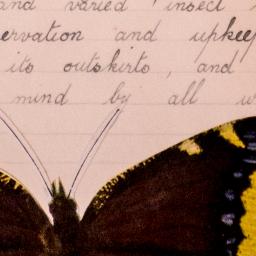 and varied insect
ervation and upkeep
its outskirts, and
mind by all w